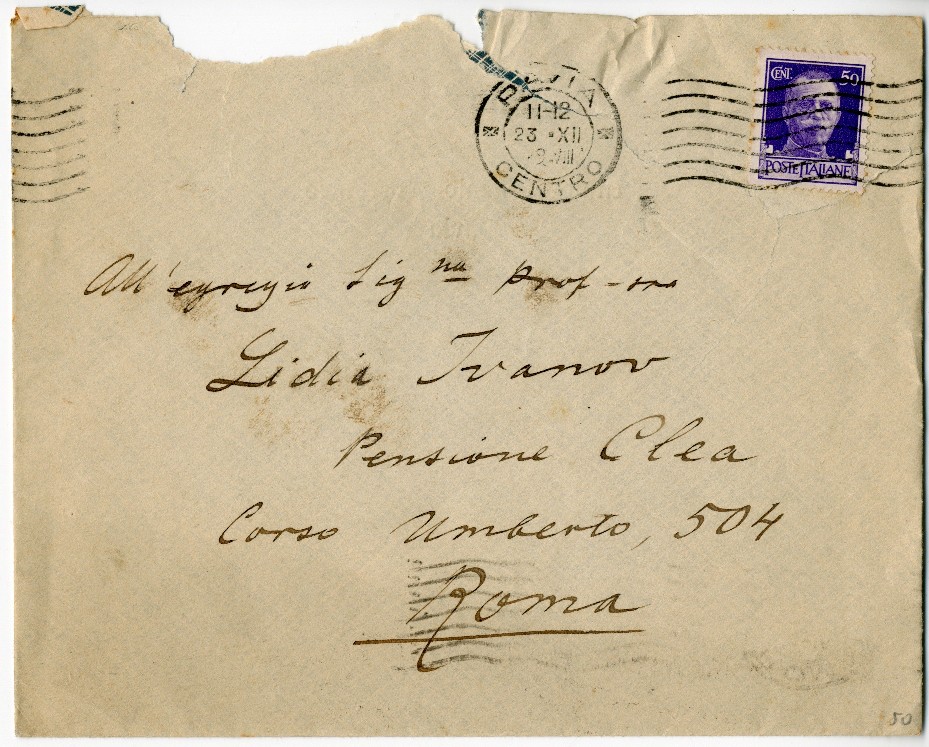 PAVIA
11-12
23 • XII
CENTRO
CENT. 50
POSTE ITALIANE
All'egregia Sig na Prof-ssa
Lidia Ivanov
Pensione Clea
Corso Umberto, 504
Roma
50